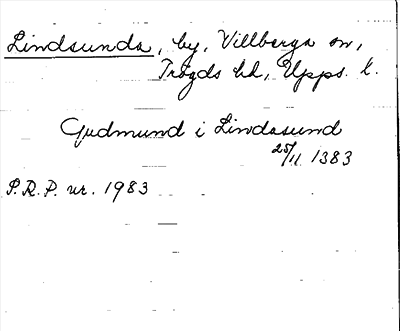 Lindsunda, by, Villberga sn,
Trögds hd, Upps. l.
Gudmund i Lindasund
25/11 1383
S.R.P. nr. 1983